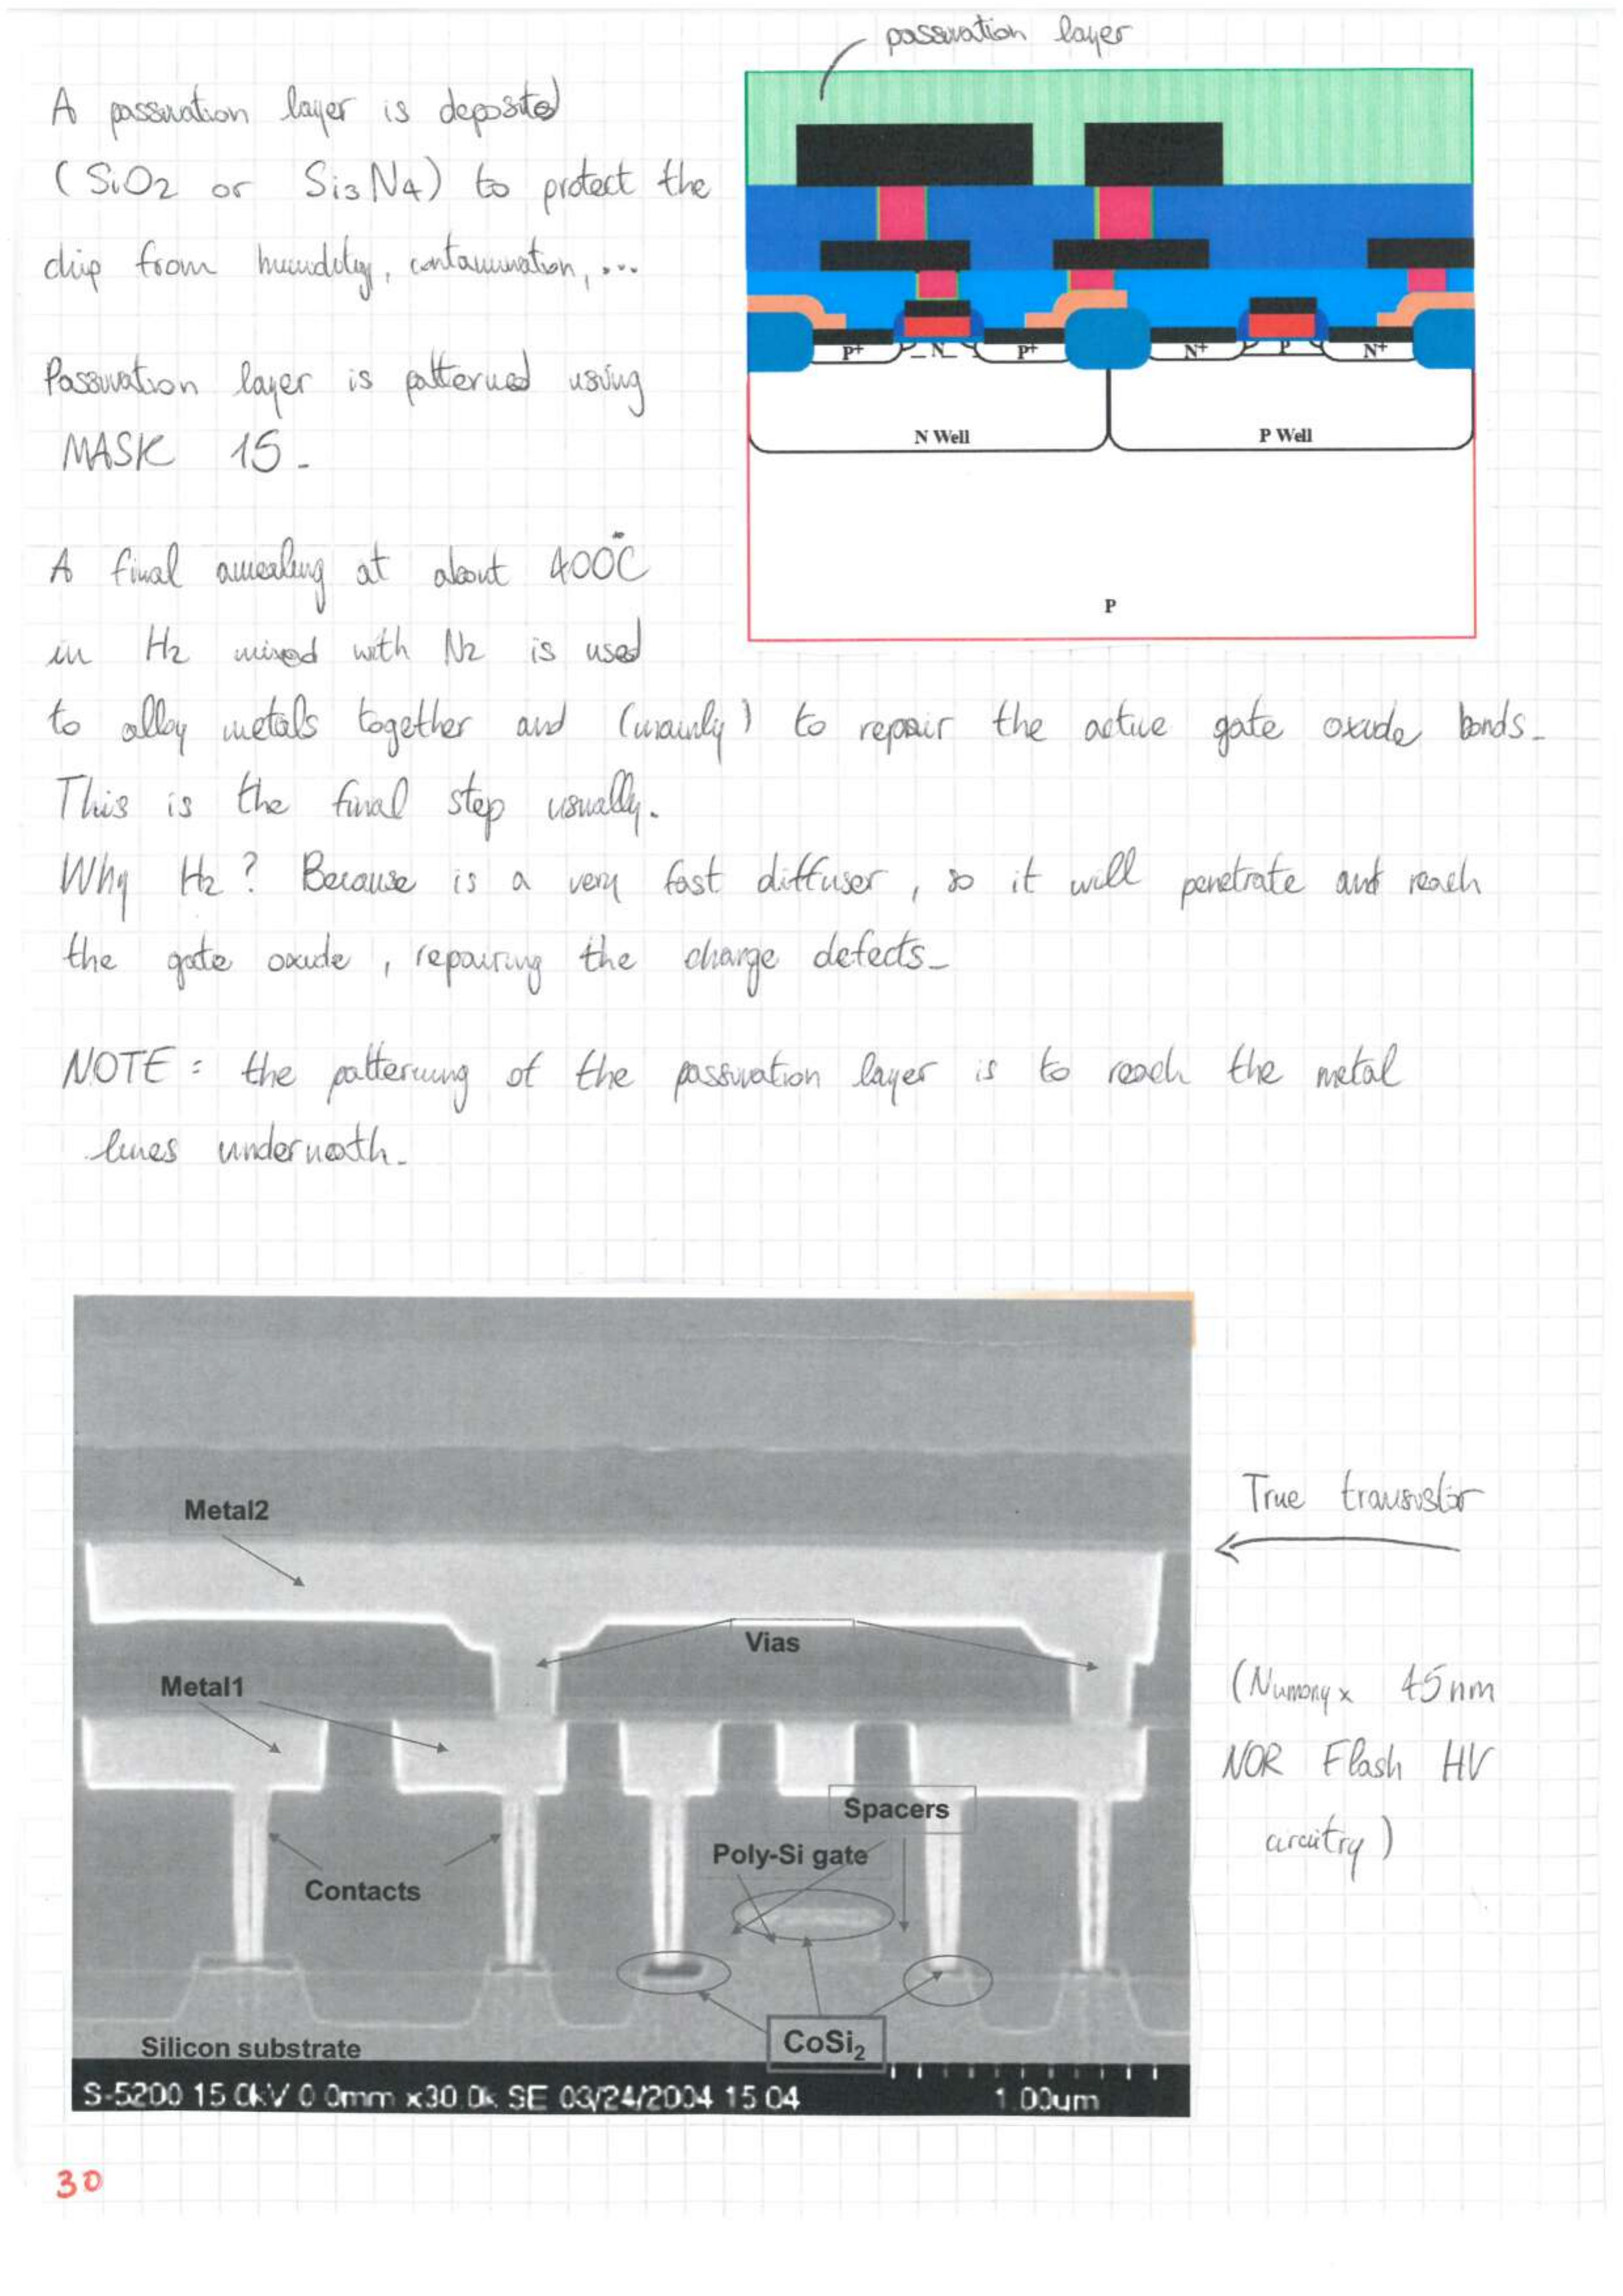 passivation layer
A passivation layer is deposited
(SiO2 or Si3N4) to protect the
chip from humidity, contamination, ...
Passivation layer is patterned using
MASK 15.
P+ N P+ N+ P N+
N Well P Well
P
A final annealing at about 400°C
in H2 mixed with N2 is used
to alloy metals together and (mainly) to repair the active gate oxide bonds.
This is the final step usually.
Why H2? Because is a very fast diffuser, so it will penetrate and reach
the gate oxide, repairing the charge defects.
NOTE: the patterning of the passivation layer is to reach the metal
lines underneath.
Metal2
Vias
Metal1
Spacers
Poly-Si gate
Contacts
CoSi2
Silicon substrate
S-5200 15.0kV 0.0mm x30.0k SE 03/24/2004 15:04 1.00um
True transistor
(Numonyx 45nm
NOR Flash HV
circuitry)
30